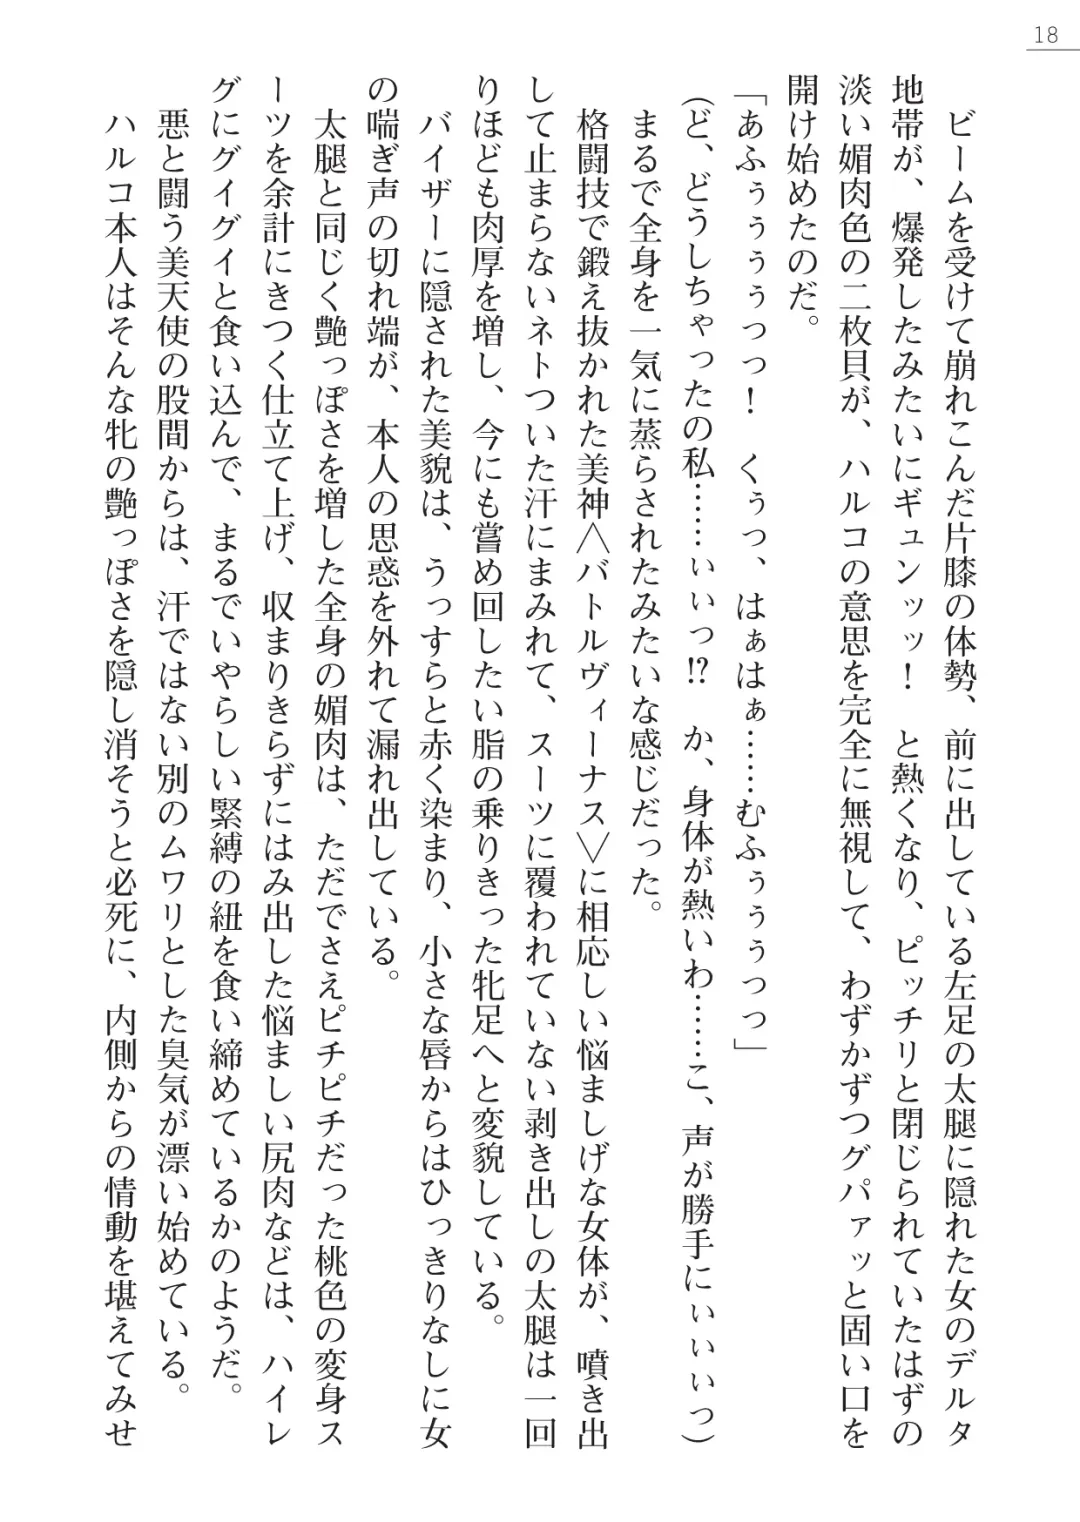 18
　ビームを受けて崩れこんだ片膝の体勢、前に出している左足の太腿に隠れた女のデルタ
地帯が、爆発したみたいにギュンッッ！　と熱くなり、ピッチリと閉じられていたはずの
淡い媚肉色の二枚貝が、ハルコの意思を完全に無視して、わずかずつグパァッと固い口を
開け始めたのだ。
「あふぅぅぅぅっっ！　くぅっ、はぁはぁ……むふぅぅぅっっ」
（ど、どうしちゃったの私……ぃぃっ!?　か、身体が熱いわ……こ、声が勝手にぃぃぃっ）
　まるで全身を一気に蒸らされたみたいな感じだった。
　格闘技で鍛え抜かれた美神＜バトルヴィーナス＞に相応しい悩ましげな女体が、噴き出
して止まらないネトついた汗にまみれて、スーツに覆われていない剥き出しの太腿は一回
りほども肉厚を増し、今にも嘗め回したい脂の乗りきった牝足へと変貌している。
　バイザーに隠された美貌は、うっすらと赤く染まり、小さな唇からはひっきりなしに女
の喘ぎ声の切れ端が、本人の思惑を外れて漏れ出している。
　太腿と同じく艶っぽさを増した全身の媚肉は、ただでさえピチピチだった桃色の変身ス
ーツを余計にきつく仕立て上げ、収まりきらずにはみ出した悩ましい尻肉などは、ハイレ
グにグイグイと食い込んで、まるでいやらしい緊縛の紐を食い締めているかのようだ。
　悪と闘う美天使の股間からは、汗ではない別のムワリとした臭気が漂い始めている。
　ハルコ本人はそんな牝の艶っぽさを隠し消そうと必死に、内側からの情動を堪えてみせ